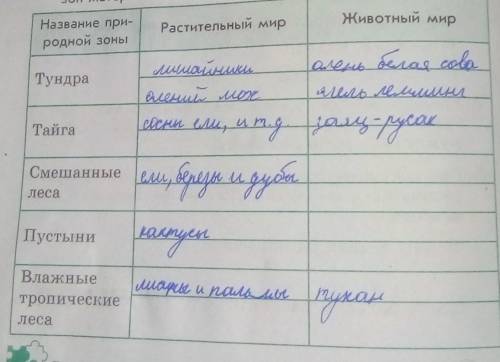 Название при-
родной зоны
Растительный мир
Животный мир
Тундра
лишайники
олений мох
олень белая сова
ягель лемминг
Тайга
сосны ели, и т.д
заяц-русак
Смешанные
леса
ели, березы и дубы
Пустыни
кактусы
Влажные
тропические
леса
лианы и пальмы
тукан